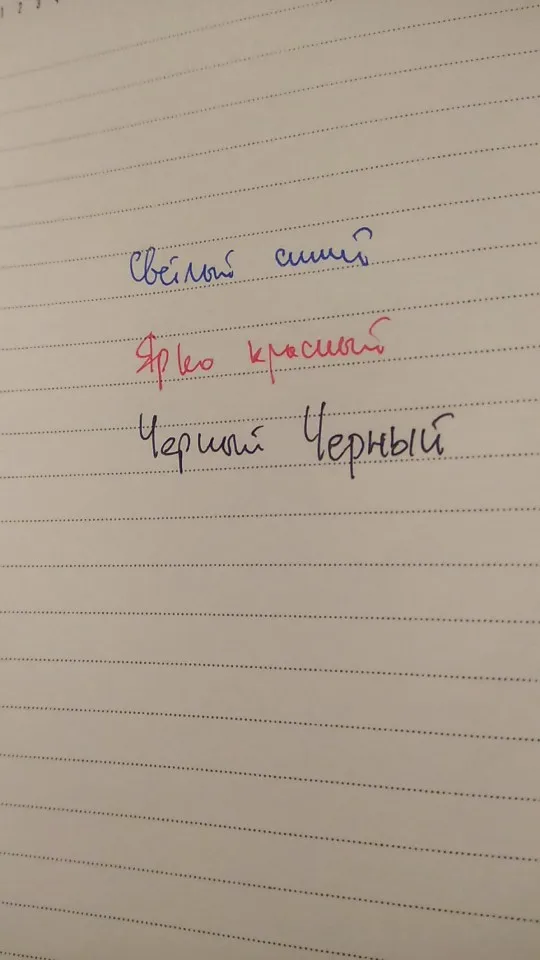 1 2 3
Светлый синий
Ярко красный
Черный Черный